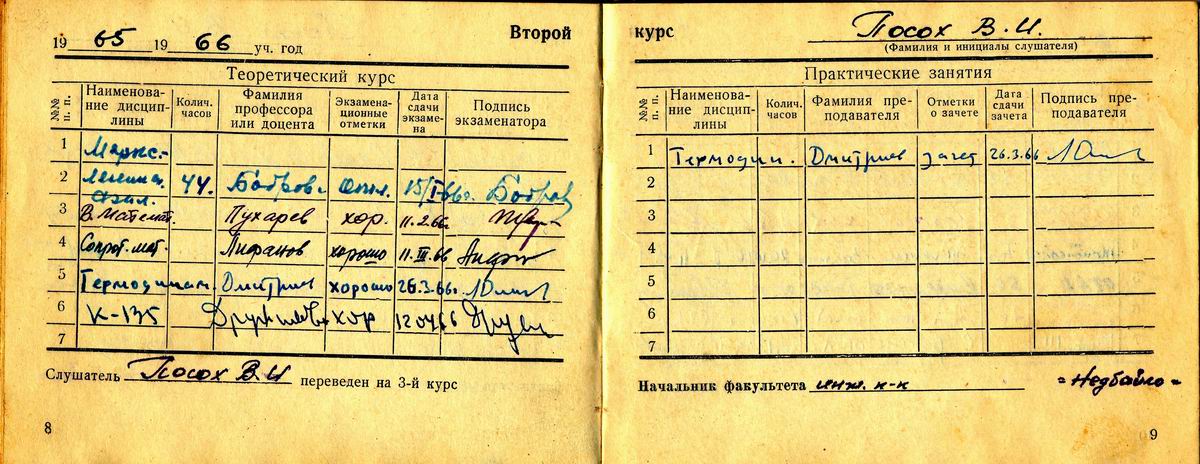 19 65 19 66 уч. год
Второй
Теоретический курс
№№ п. п.
Наименование дисциплины
Колич. часов
Фамилия профессора или доцента
Экзаменационные отметки
Дата сдачи экзамена
Подпись экзаменатора
1 Маркс.-
2 44. Бобров. 15/I 66г. Бобров
3 В. математ. Пухарев хор. 11.2.66г.
4 Сопрот. мат. Лифанов хорошо 11.III.66
5 Термодинам. Дмитриев хорошо 26.3.66г.
6 К-135 хор 120466
7
Слушатель Посох В.И переведен на 3-й курс
8
курс Посох В. И.
(Фамилия и инициалы слушателя)
Практические занятия
№№ п. п.
Наименование дисциплины
Колич. часов
Фамилия преподавателя
Отметки о зачете
Дата сдачи зачета
Подпись преподавателя
1 Термодин. Дмитриев зачет 26.3.66
2
3
4
5
6
7
Начальник факультета инж. п-к =Недбайло=
9